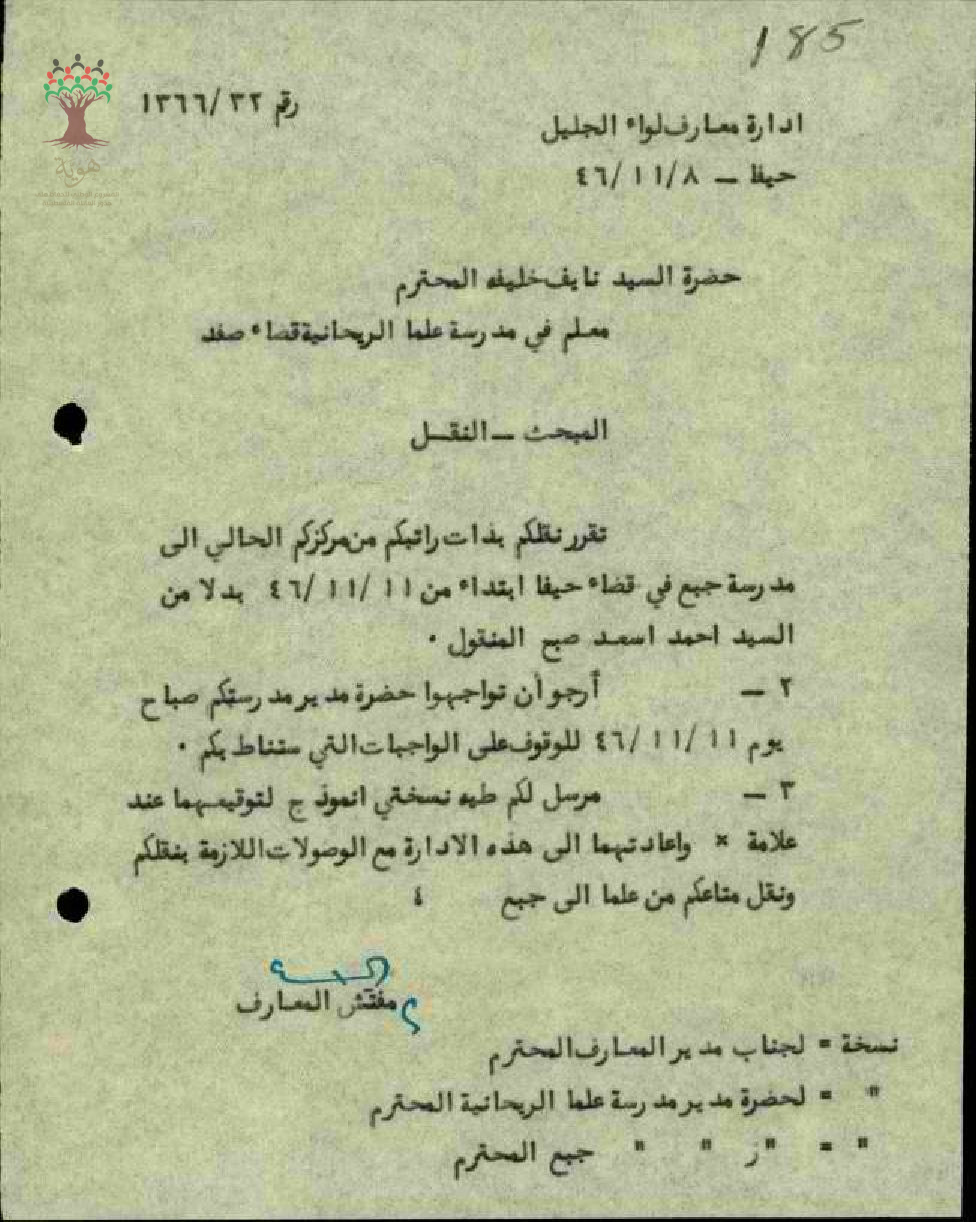 185
رقم ٣٢/ ١٣٦٦
ادارة معارف لواء الجليل
حيفا – ٤٦/١١/٨
هوية
حضرة السيد نايف خليفه المحترم
معلم في مدرسة علما الريحانية قضاء صفد
المبحث – النقل
تقرر نقلكم بذات راتبكم من مركزكم الحالي الى
مدرسة جبع في قضاء حيفا ابتداء من ٤٦/١١/١١ بدلا من
السيد احمد اسعد صبح المنقول .
٢ – أرجو أن تواجهوا حضرة مدير مدرستكم صباح
يوم ٤٦/١١/١١ للوقوف على الواجبات التي ستناط بكم .
٣ – مرسل لكم طيه نسختي انموذج لتوقيعهما عند
علامة × واعادتهما الى هذه الادارة مع الوصولات اللازمة بنقلكم
ونقل متاعكم من علما الى جبع ٤
مفتش المعارف
نسخة = لجناب مدير المعارف المحترم
" = لحضرة مدير مدرسة علما الريحانية المحترم
" = "ز " " جبع المحترم